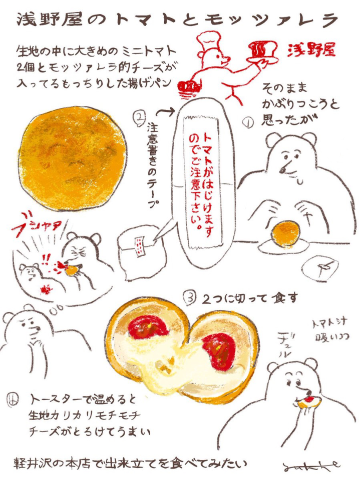 浅野屋のトマトとモッツァレラ
生地の中に大きめのミニトマト
2個とモッツァレラ的チーズが
入ってるもっちりした揚げパン
浅野屋
そのまま
かぶりつこうと
思ったが
①
②
注意書きのテープ
トマトがはじけます
のでご注意下さい。
ブシャァ
!!
③ 2つに切って食す
トマト汁
吸いつつ
④ トースターで温めると
生地カリカリモチモチ
チーズがとろけてうまい
軽井沢の本店で出来立てを食べてみたい